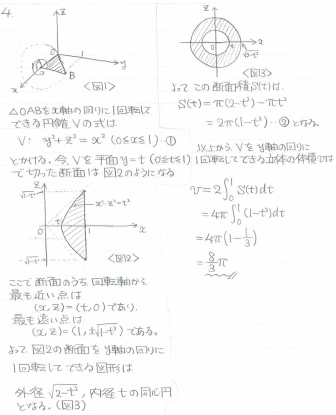 4.
z
O
1
y
A
x
B
<図1>
△OABをx軸の回りに1回転して
できる円錐Vの式は
V: y²+z²=x² (0≤x≤1) ①
とかける。今、Vを平面y=t (0≤t≤1)
で切った断面は図2のようになる
z
√1-t²
x²-z²=t²
O
t
1
x
-√1-t²
<図2>
ここで断面のうち、回転軸から
最も近い点は
(x,z)=(t,0)であり、
最も遠い点は
(x,z)=(1,±√1-t²)である。
よって図2の断面をy軸の回りに
1回転してできる図形は
外径√2-t², 内径tの同心円
となる。(図3)
z
O
t
x
√2-t²
<図3>
よってこの断面積S(t)は、
S(t)=π(2-t²)-πt²
=2π(1-t²) ②となる。
以上から、Vをy軸の回りに
1回転してできる立体の体積vは
v=2∫₀¹S(t)dt
=4π∫₀¹(1-t²)dt
=4π(1-1/3)
=8/3π